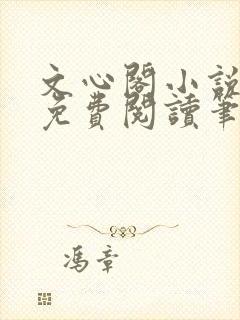 文心閣小說
免費閱讀筆
馮章